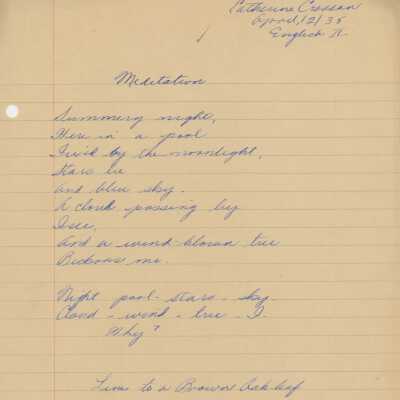 Catherine Crossan
April, 12/35
English II.
Meditation
Summery night,
Here in a pool
by the moonlight,
Stars lie
and blue sky.
A cloud passing by
I see,
And a wind-blown tree
Beckons me.
Night - pool - stars - sky -
Cloud - wind - tree - I.
Why?
Lines to a Brown Oak-leaf